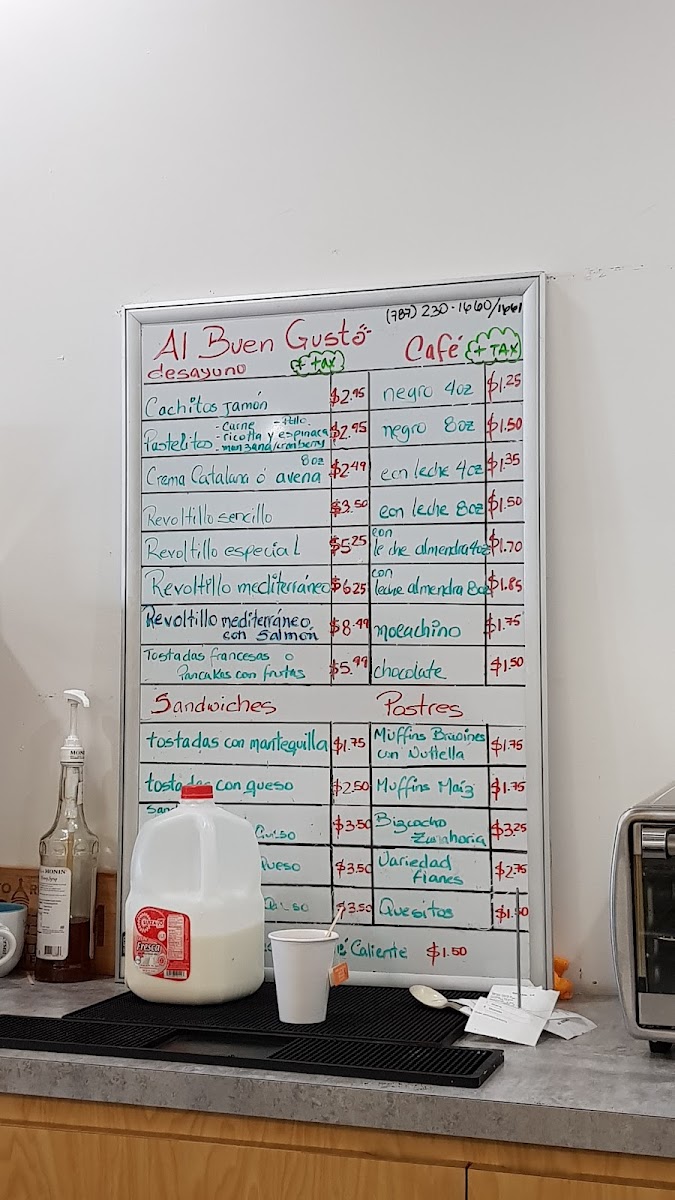 (787) 230-1660/1661
Al Buen Gusto
+ tax
Café + TAX
desayuno
Cachitos Jamón $2.95
Pastelitos - Carne
- ricotta y espinaca
- manzana/cranberry $2.95
Crema Catalana ó avena 8oz $2.49
Revoltillo sencillo $3.50
Revoltillo especial $5.25
Revoltillo mediterráneo $6.25
Revoltillo mediterráneo
con Salmón $8.49
Tostadas francesas o
Pancakes con frutas $5.99
negro 4oz $1.25
negro 8oz $1.50
con leche 4oz $1.35
con leche 8oz $1.50
con
leche almendra 4oz $1.70
con
leche almendra 8oz $1.85
mocachino $1.75
chocolate $1.50
Sandwiches
tostadas con mantequilla $1.75
con queso $2.50
$3.50
Queso $3.50
$3.50
Postres
Muffins Brwoines
con Nuttella $1.75
Muffins Maíz $1.75
Bizcocho
Zanahoria $3.25
Variedad
flanes $2.75
Quesitos
Caliente $1.50
MONIN
Fresca